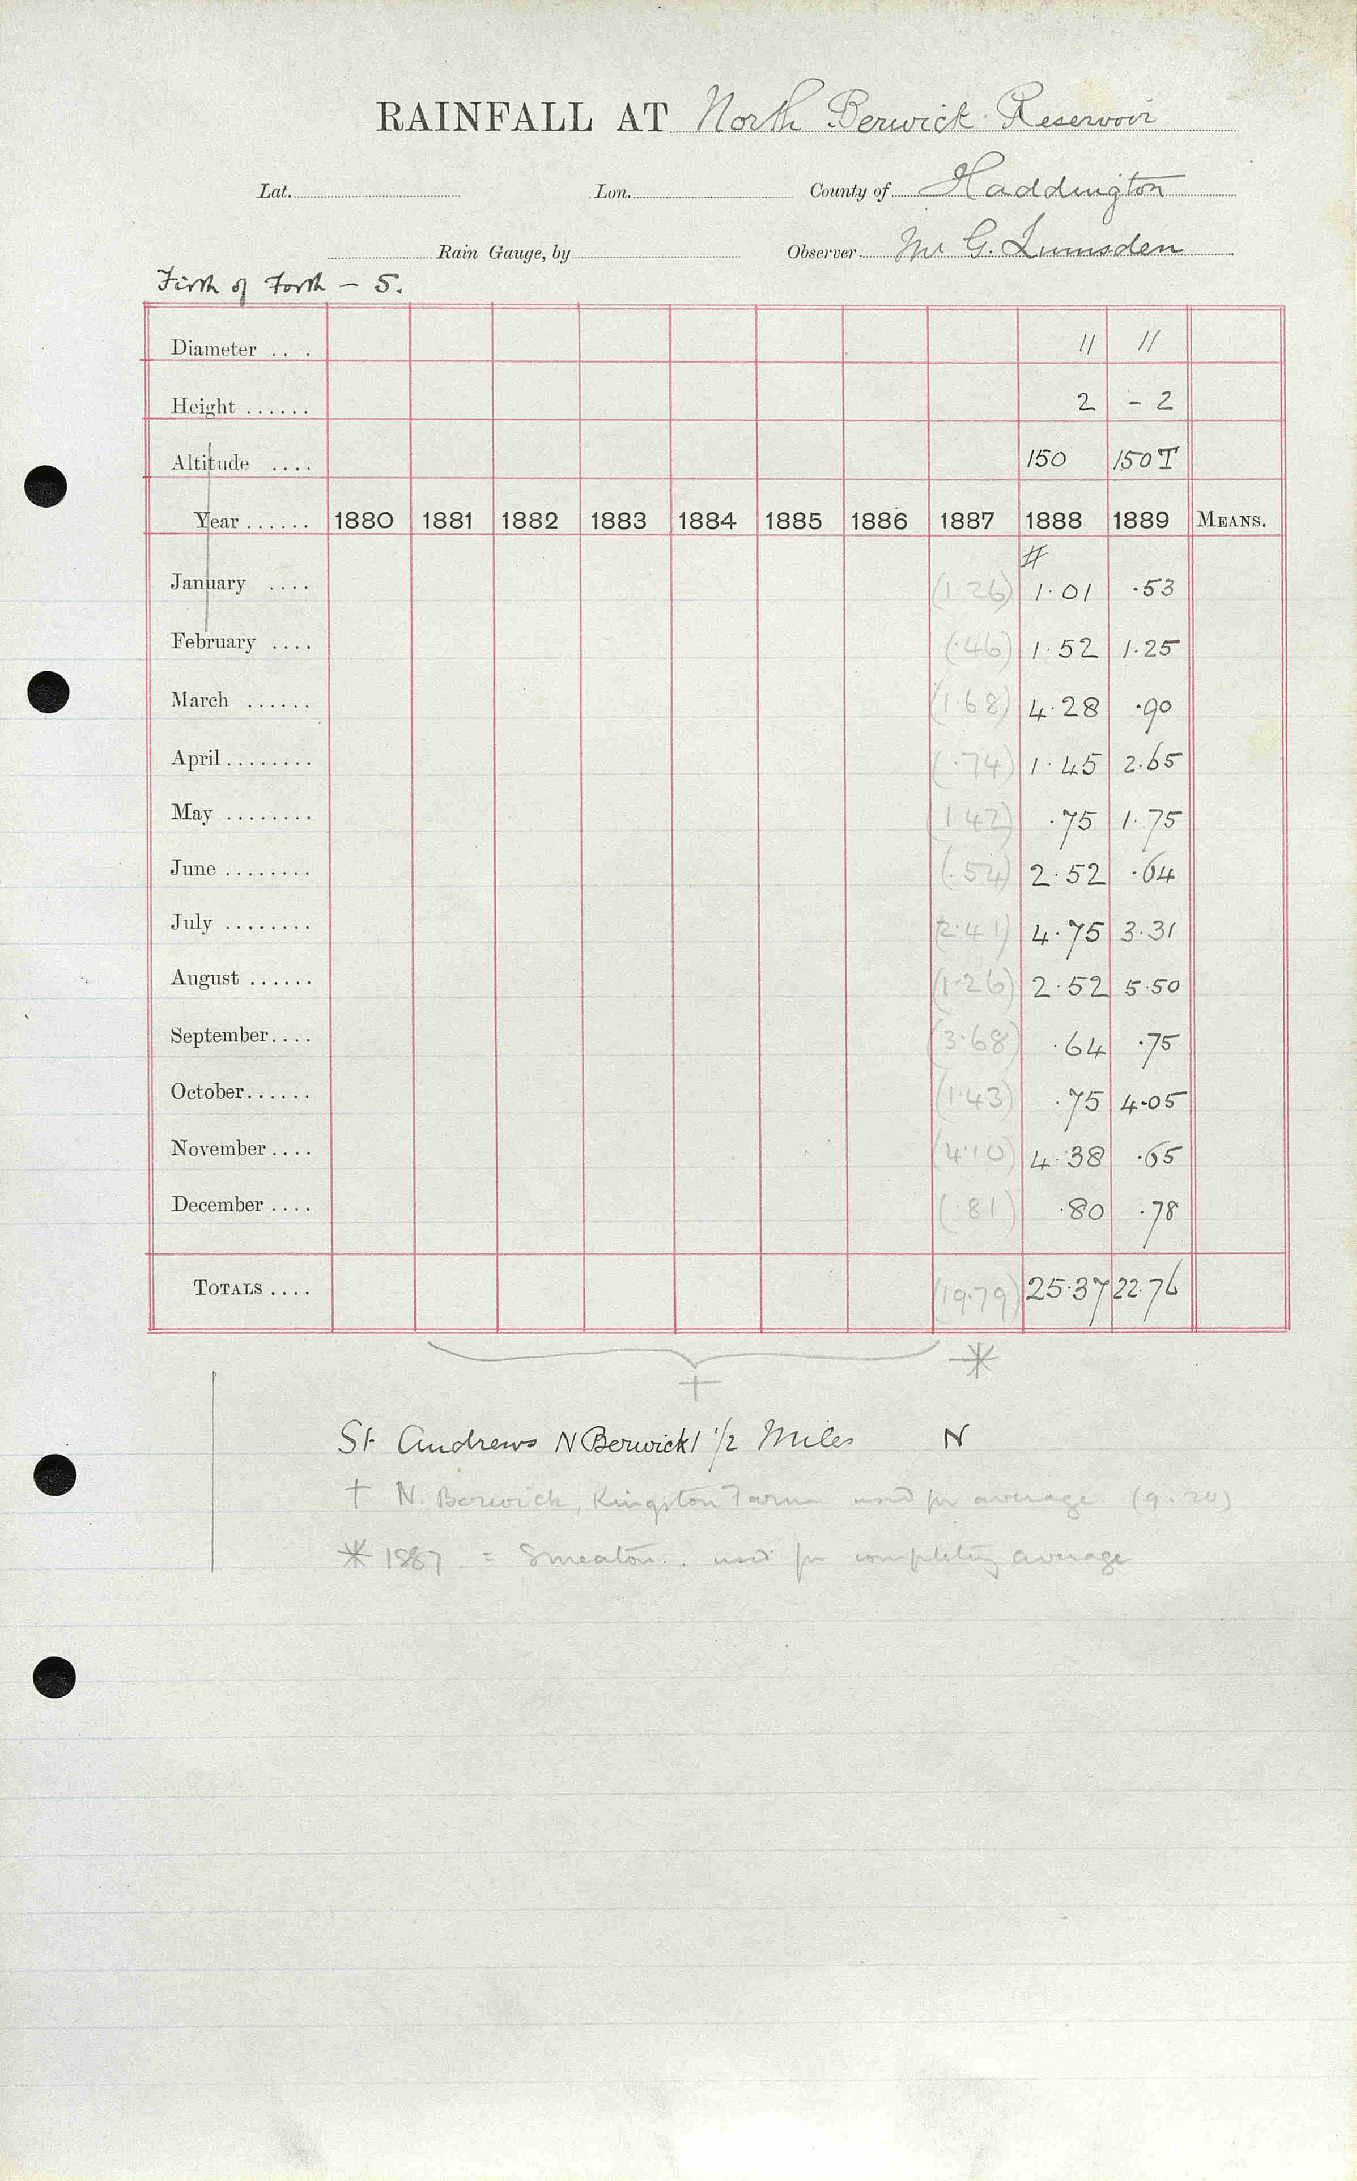 RAINFALL AT North Berwick Reservoir
Lat. Lon. County of Haddington
Rain Gauge, by Observer Mr G. Lumsden
Firth of Forth - S.
Diameter .. . 11 11
Height ...... 2 - 2
Altitude .... 150 150 T
Year ...... 1880 1881 1882 1883 1884 1885 1886 1887 1888 1889 MEANS.
#
January .... (1.26) 1.01 .53
February .... (.46) 1.52 1.25
March ...... (1.68) 4.28 .90
April ........ (.74) 1.45 2.65
May ........ (1.42) .75 1.75
June ........ (.54) 2.52 .64
July ........ (2.41) 4.75 3.31
August ...... (1.26) 2.52 5.50
September.... (3.68) .64 .75
October...... (1.43) .75 4.05
November.... (4.10) 4.38 .65
December .... (.81) .80 .78
TOTALS .... (19.79) 25.37 22.76
*
†
St Andrews N Berwick 1 1/2 Miles N
† N. Berwick, Kingston Farm used for average (9.20)
* 1887 = Smeaton.. used for completing average